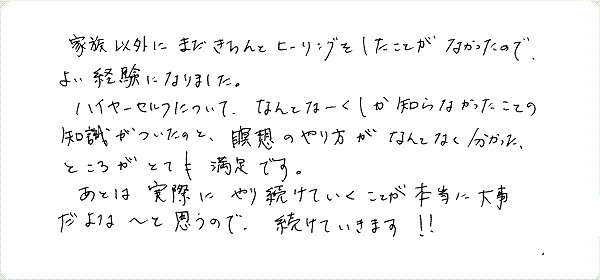 家族以外にまだきちんとヒーリングをしたことがなかったので、
よい経験になりました。
ハイヤーセルフについて、なんとなーくしか知らなかったことの
知識がついたのと、瞑想のやり方がなんとなく分かった、
ところがとても満足です。
あとは実際にやり続けていくことが本当に大事
だよな〜と思うので、続けていきます!!